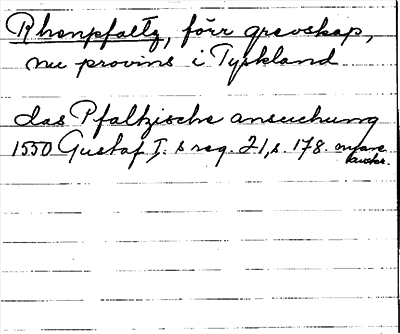 Rhenpfaltz, förr grevskap,
nu provins i Tyskland
das Pfaltzische ansuchung
1550 Gustaf I:s reg. 21, s. 178. nyare
avskr.